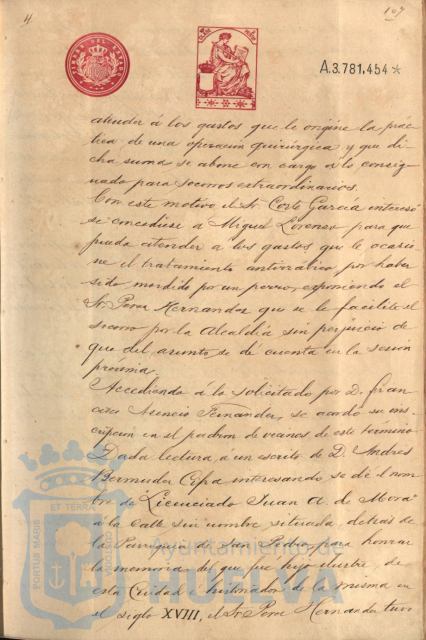 4
107
TIMBRE DEL ESTADO
A.3.781.454*
atender á los gastos que le origine la prác
tica de una operación quirúrgica y que di
cha suma se abone con cargo á lo consig
nado para socorros extraordinarios.
Con este motivo el Sr. Corte García interesó
se concediese a Miguel Lorenzo para que
pueda atender a los gastos que le ocasio
ne el tratamiento antirrábico por haber
sido mordido por un perro, exponiendo el
Sr. Perez Hernandez que se le facilite el
socorro por la Alcaldía sin perjuicio de
que del asunto se dé cuenta en la sesión
próxima.
Accediendo á lo solicitado por D. Fran
cisco Asencio Fernandez, se acordó su ins
cripción en el padron de vecinos de este término
Dada lectura á un escrito de D. Andrés
Bermudez Cefa interesando se dé el nom
bre de Licenciado Juan A. de Mora
á la calle sin nombre situada detras de
la Parroquia de San Pedro para honrar
la memoria del que fue hijo ilustre de
esta Ciudad é historiador de la misma en
el siglo XVIII, el Sr. Perez Hernandez tuvo
PORTUS MARIS ET TERRAE CUSTODIA
Ayuntamiento de
HUELVA